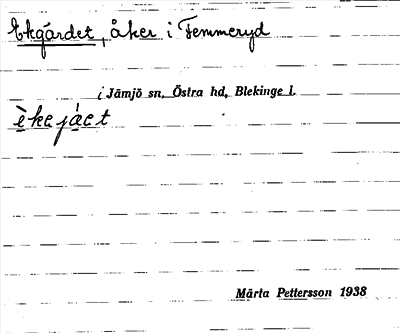 Ekgärdet, åker i Femmeryd
i Jämjö sn, Östra hd, Blekinge l.
èkejáet
Märta Pettersson 1938